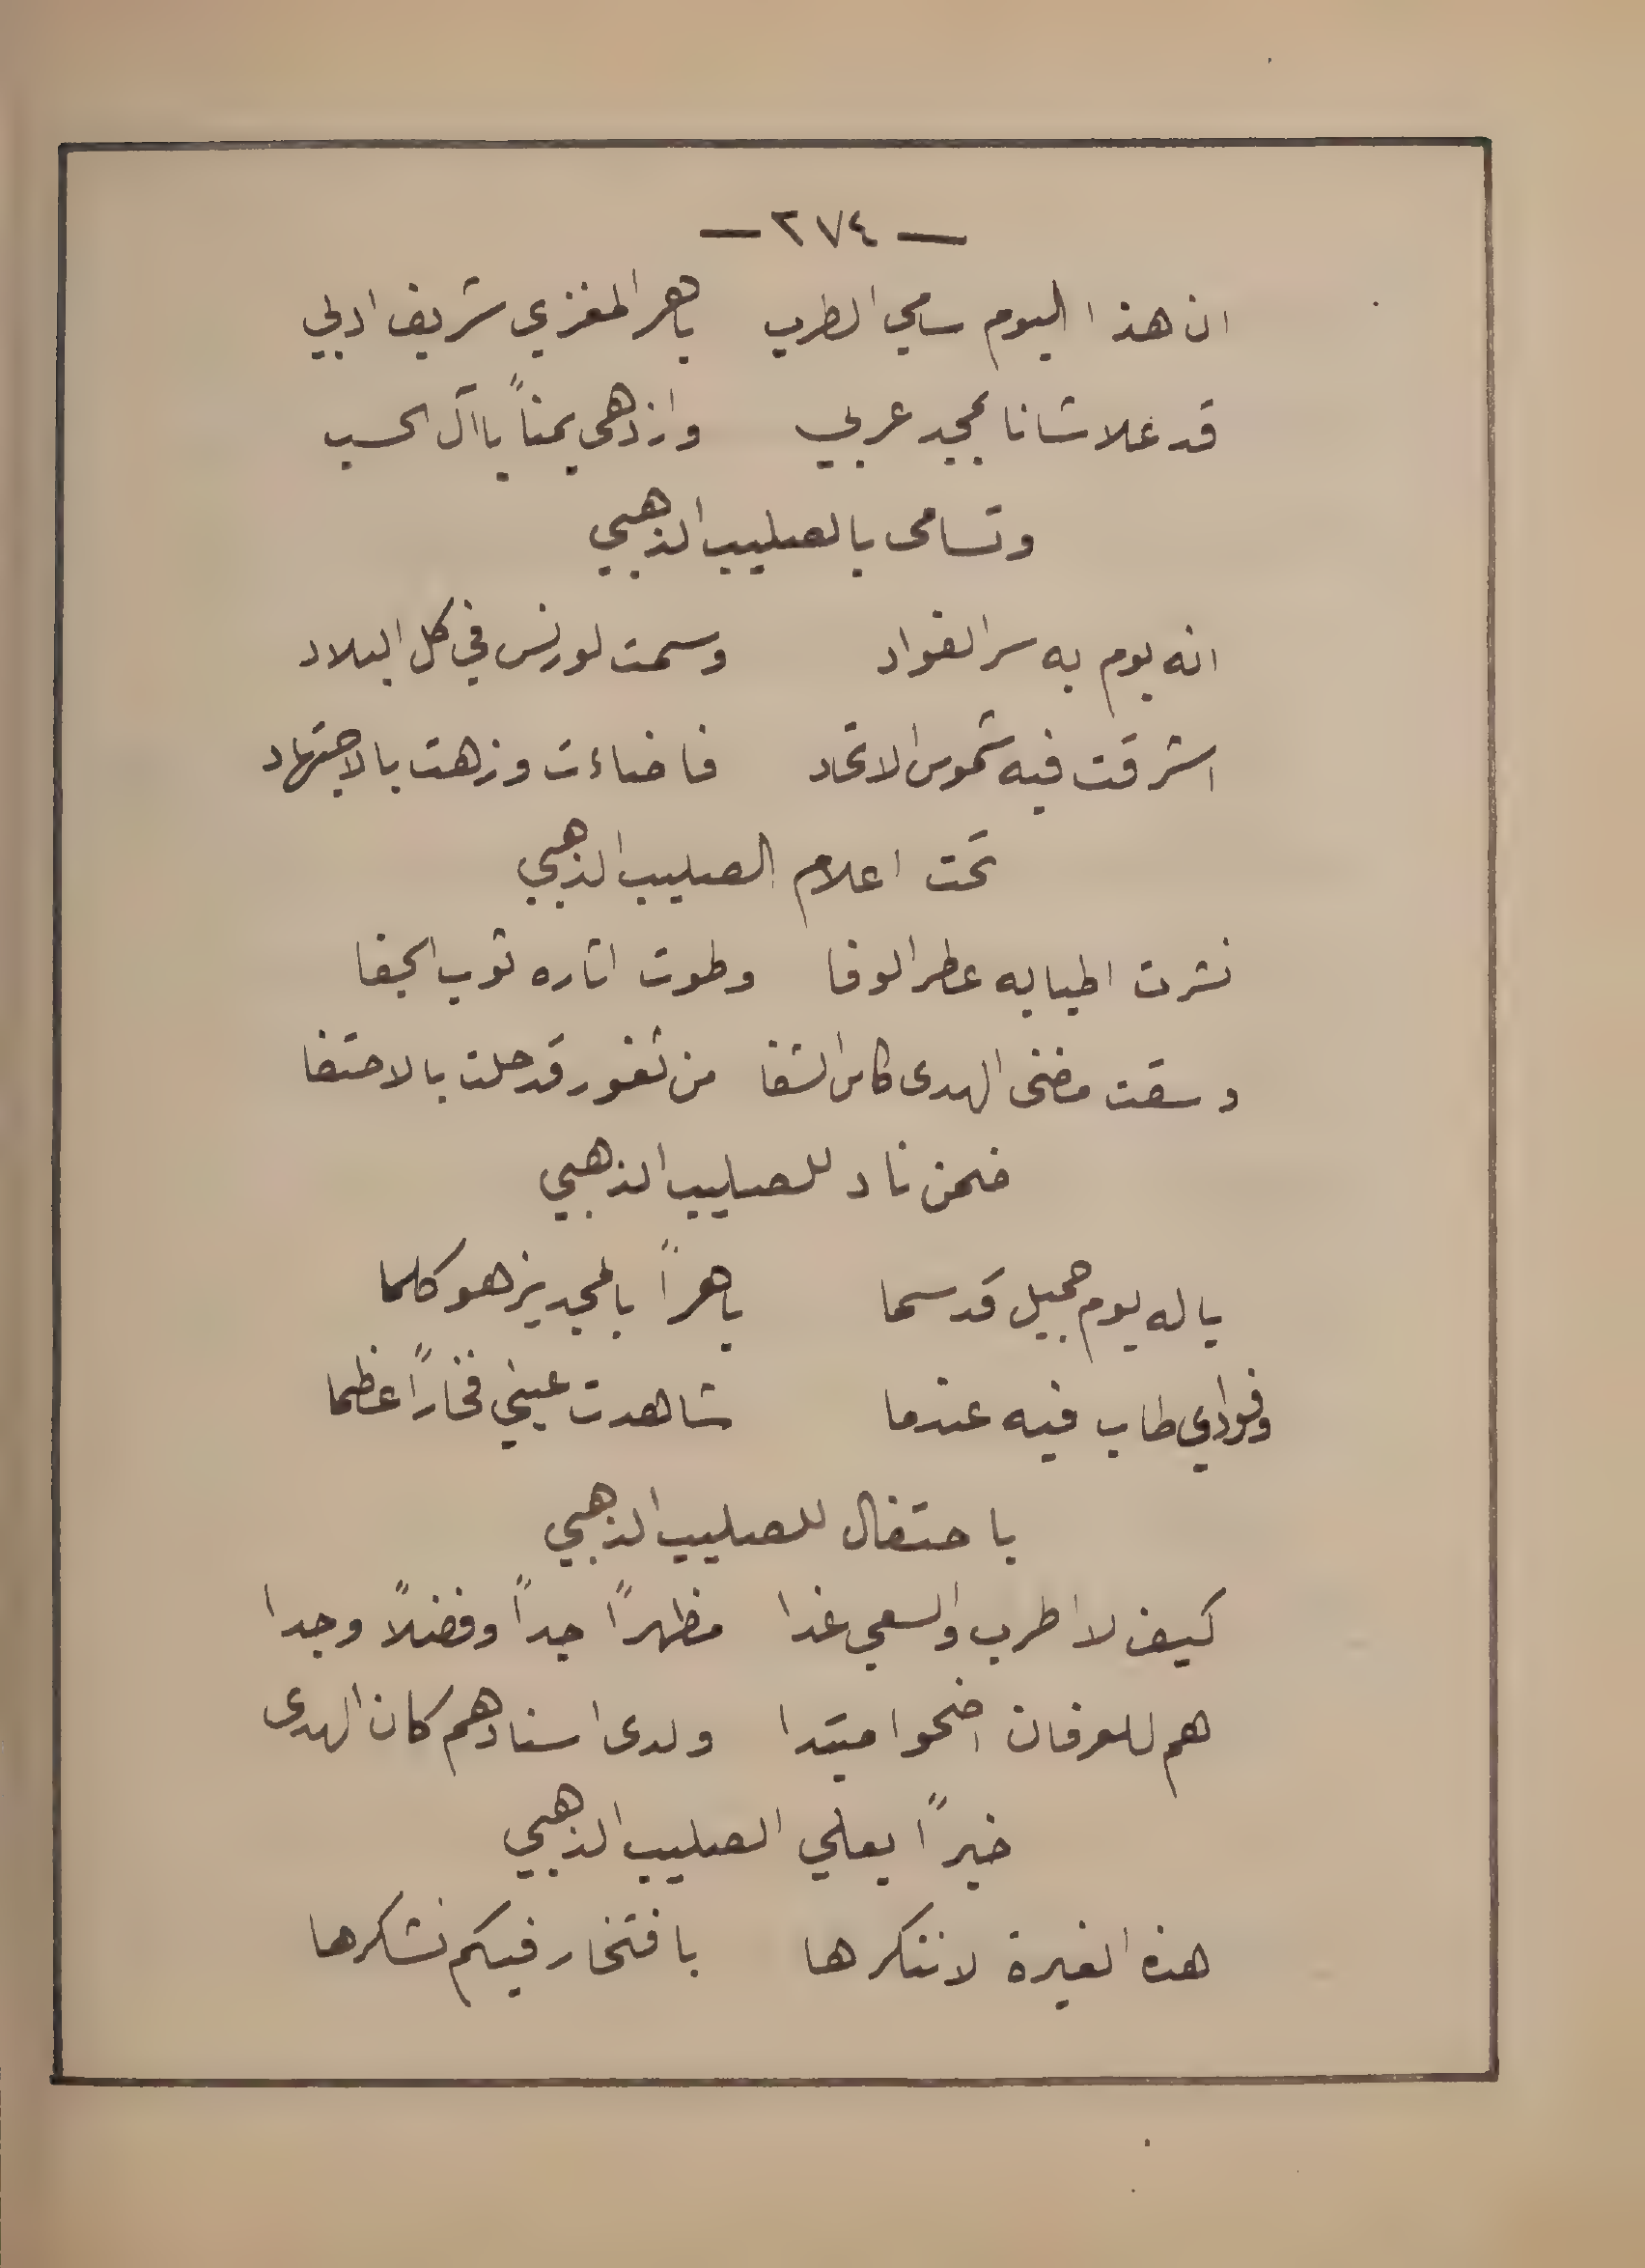 — ٢٧٤ —
ان هذا اليوم سامي الطرب باهر المغزي شريف ادبي
قد علا شانا بمجد عربي وازدهى يمناً يا آل الحسب
وتسامى بالصليب الذهبي
انه يوم به سر الفواد وسمت لورنس في كل البلاد
اشرقت فيه شموس الاتحاد فاضاءت وزهت بالاجتهاد
تحت اعلام الصليب الذهبي
نشرت اطيابه عطر الوفا وطوت اثاره ثوب الجفا
وسقت مضنى الهدى كاس الشفا من ثغور قد حلت بالاحتفا
ضمن ناد للصليب الذهبي
يا له يوم جميل قد سما باهراً بالمجد يزهو كلما
وفوادي طاب فيه عندما شاهدت عيني فخاراً عظما
باحتفال للصليب الذهبي
كيف لا اطرب والسعي غدا مظهراً جداً وفضلاً وجدا
هم للعرفان اضحوا مبتدا ولدى اسنادهم كان الهدى
خبراً يعلي الصليب الذهبي
هذه الغيرة لا ننكرها بافتخار فيكم نشكرها